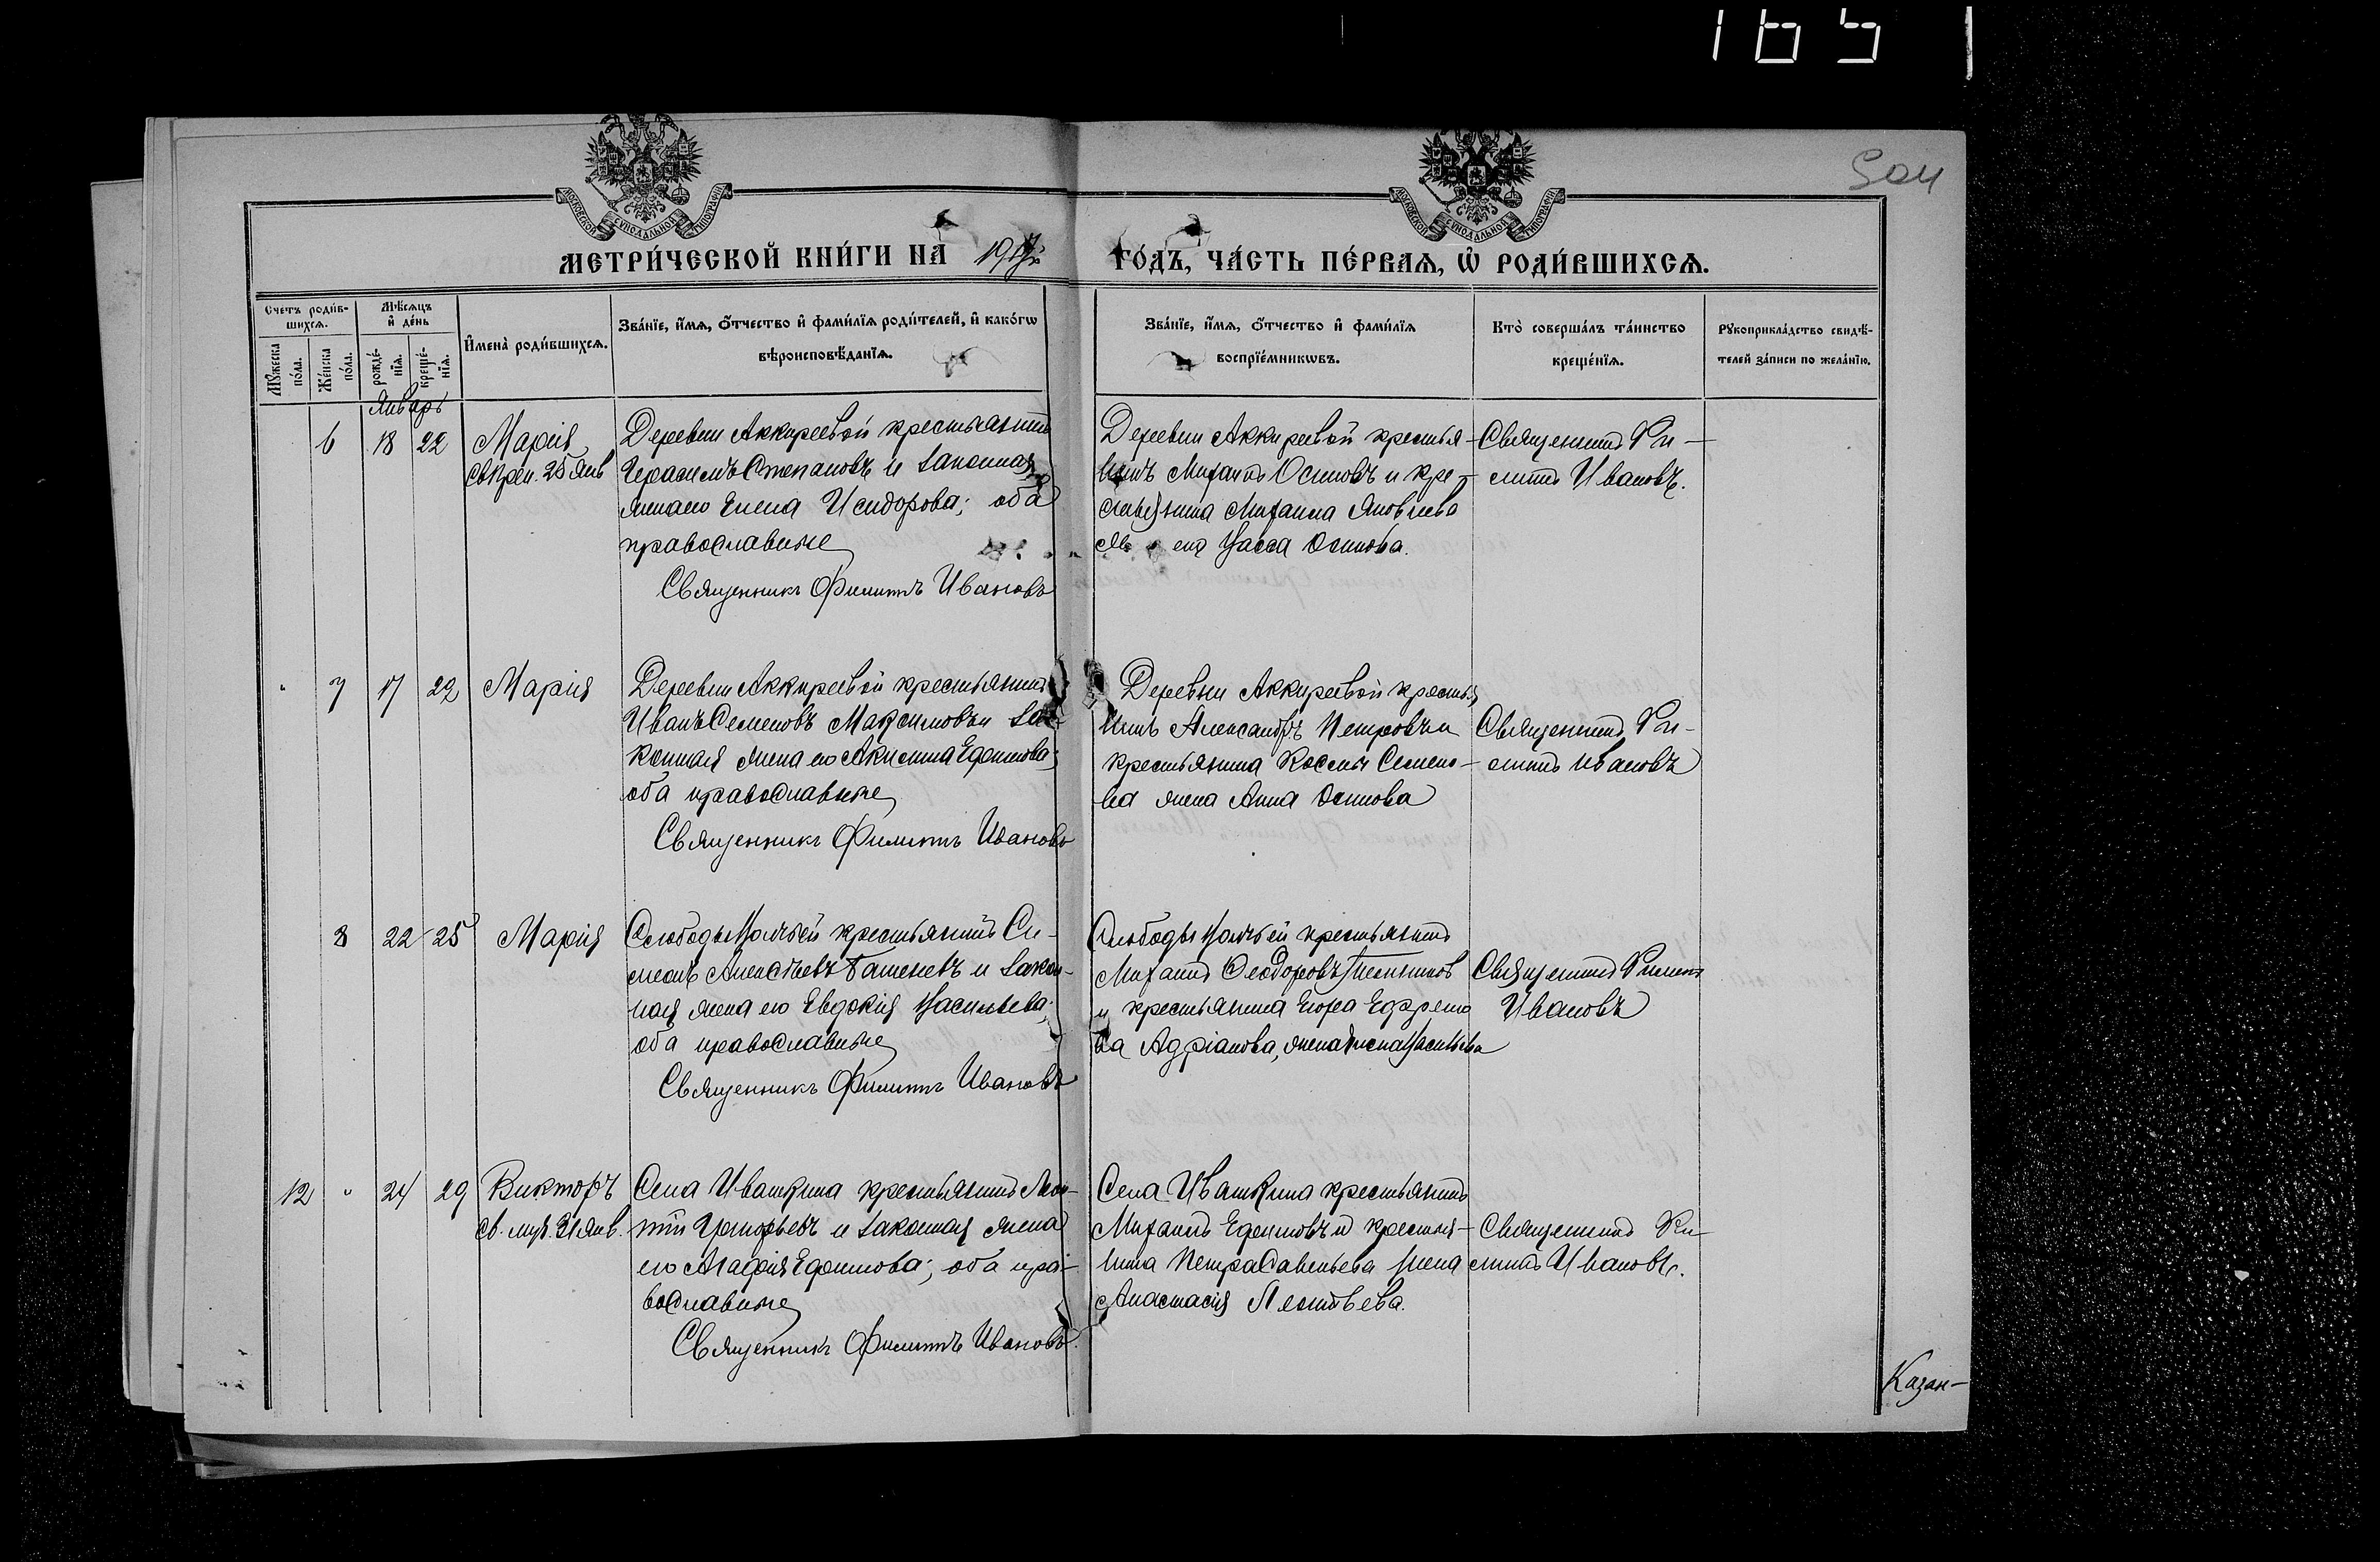 1651
504
МОСКОВСКОЙ СѴНОДАЛЬНОЙ ТИПОГРАФІИ
МОСКОВСКОЙ СѴНОДАЛЬНОЙ ТИПОГРАФІИ
МЕТРИ́ЧЕСКОЙ КНИ́ГИ НА 1917й
ГО́ДЪ, ЧА́СТЬ ПЕ́РВАѦ, Ѽ РОДИ́ВШИХСѦ.
Счетъ роди́в-
шихсѧ.
Мꙋжеска
по́ла.
Же́нска
по́ла.
Мѣ́сѧцъ
и҆ де́нь
рожде́-
нїѧ.
креще́-
нїѧ.
И҆мена̀ роди́вшихсѧ.
Зва́нїе, и҆́мѧ, ѻ҆́тчество и҆ фами́лїѧ роди́телей, и҆ како́гѡ
вѣроисповѣ́данїѧ.
Зва́нїе, и҆́мѧ, ѻ҆́тчество и҆ фами́лїѧ
воспрїе́мникѡвъ.
Кто̀ соверша́лъ та́инство
креще́нїѧ.
Рꙋкоприкла́дство свидѣ́-
телей за́писи по жела́нїю.
Январь
6 18 22 Марія
св. преп. 25 Янв
Деревни Аккиреевой крестьянинъ
Герасимъ Степановъ и законная
жена его Елена Исидорова; оба
православные
Священникъ Филиппъ Ивановъ
Деревни Аккиреевой крестья-
нинъ Михаилъ Осиповъ и кре-
стьянина Михаила Яковлева
Васса Осипова.
Священникъ Фи-
липпъ Ивановъ.
" 7 17 22 Марія
Деревни Аккиреевой крестьянинъ
Иванъ Семеновъ Максимовъ и за-
конная жена его Акилина Ефимова;
оба православные
Священникъ Филиппъ Ивановъ
Деревни Аккиреевой крестья
нинъ Александръ Петровъ и
крестьянина Космы Семено-
ва жена Анна Осипова
Священникъ Фи-
липпъ Ивановъ
8 22 25 Марія
Слободы Волчьей крестьянинъ Си-
меонъ Алексѣевъ и закон-
ная жена его Евдокія Васильева;
оба православные
Священникъ Филиппъ Ивановъ
Слободы Волчьей крестьянинъ
Михаилъ Ѳеодоровъ
и крестьянина Егора Ефремо
ва Адріанова, жена Васильева
Священникъ Филиппъ
Ивановъ
12 " 24 29 Викторъ
св. муч. 31 янв.
Села Ивашкина крестьянинъ Леон-
тій Григорьевъ и законная жена
его Агафія Ефимова; оба пра-
вославные
Священникъ Филиппъ Ивановъ.
Села Ивашкина крестьянинъ
Михаилъ Ефимовъ и крестья-
нина Петра Савельева жена
Анастасія Леонтьева.
Священникъ Фи-
липпъ Ивановъ.
Казан-